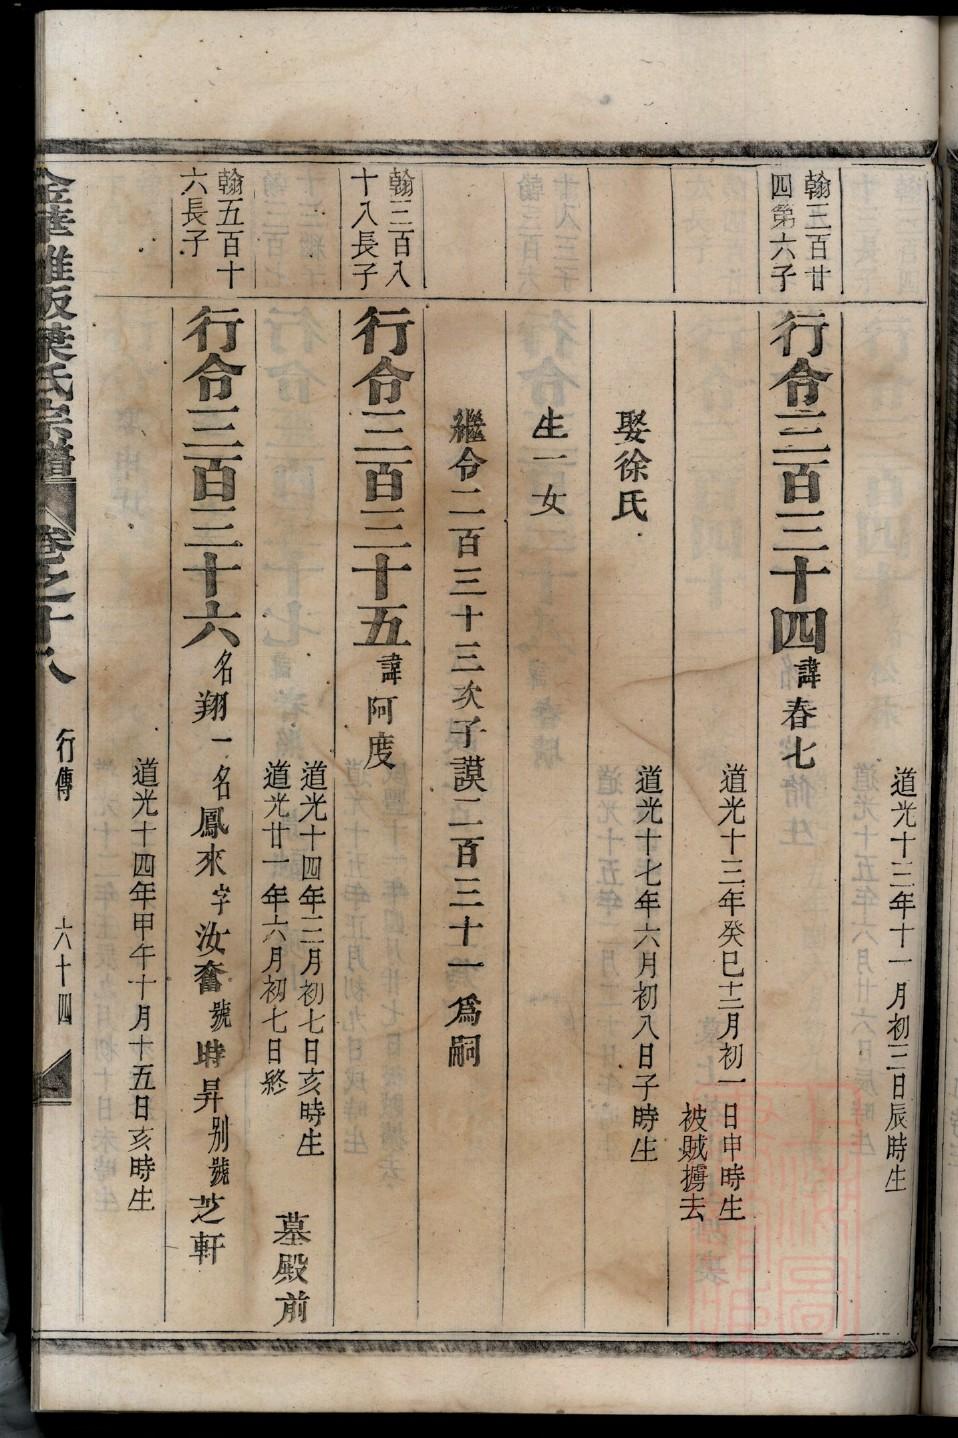 道光十三年十一月初三日辰時生
翰三百廿
四第六子
行令三百三十四諱春七
道光十三年癸巳十二月初一日申時生
被賊擄去
娶徐氏
道光十七年六月初八日子時生
生一女
繼令二百三十三次子謨二百三十一爲嗣
翰三百八
十八長子
行令三百三十五諱阿度
道光十四年二月初七日亥時生
道光廿一年六月初七日終
墓殿前
翰五百十
六長子
行令三百三十六名翔一名鳳來字汝奮號時昇別號芝軒
道光十四年甲午十月十五日亥時生
葉氏宗譜
卷之十八
行傳
六十四